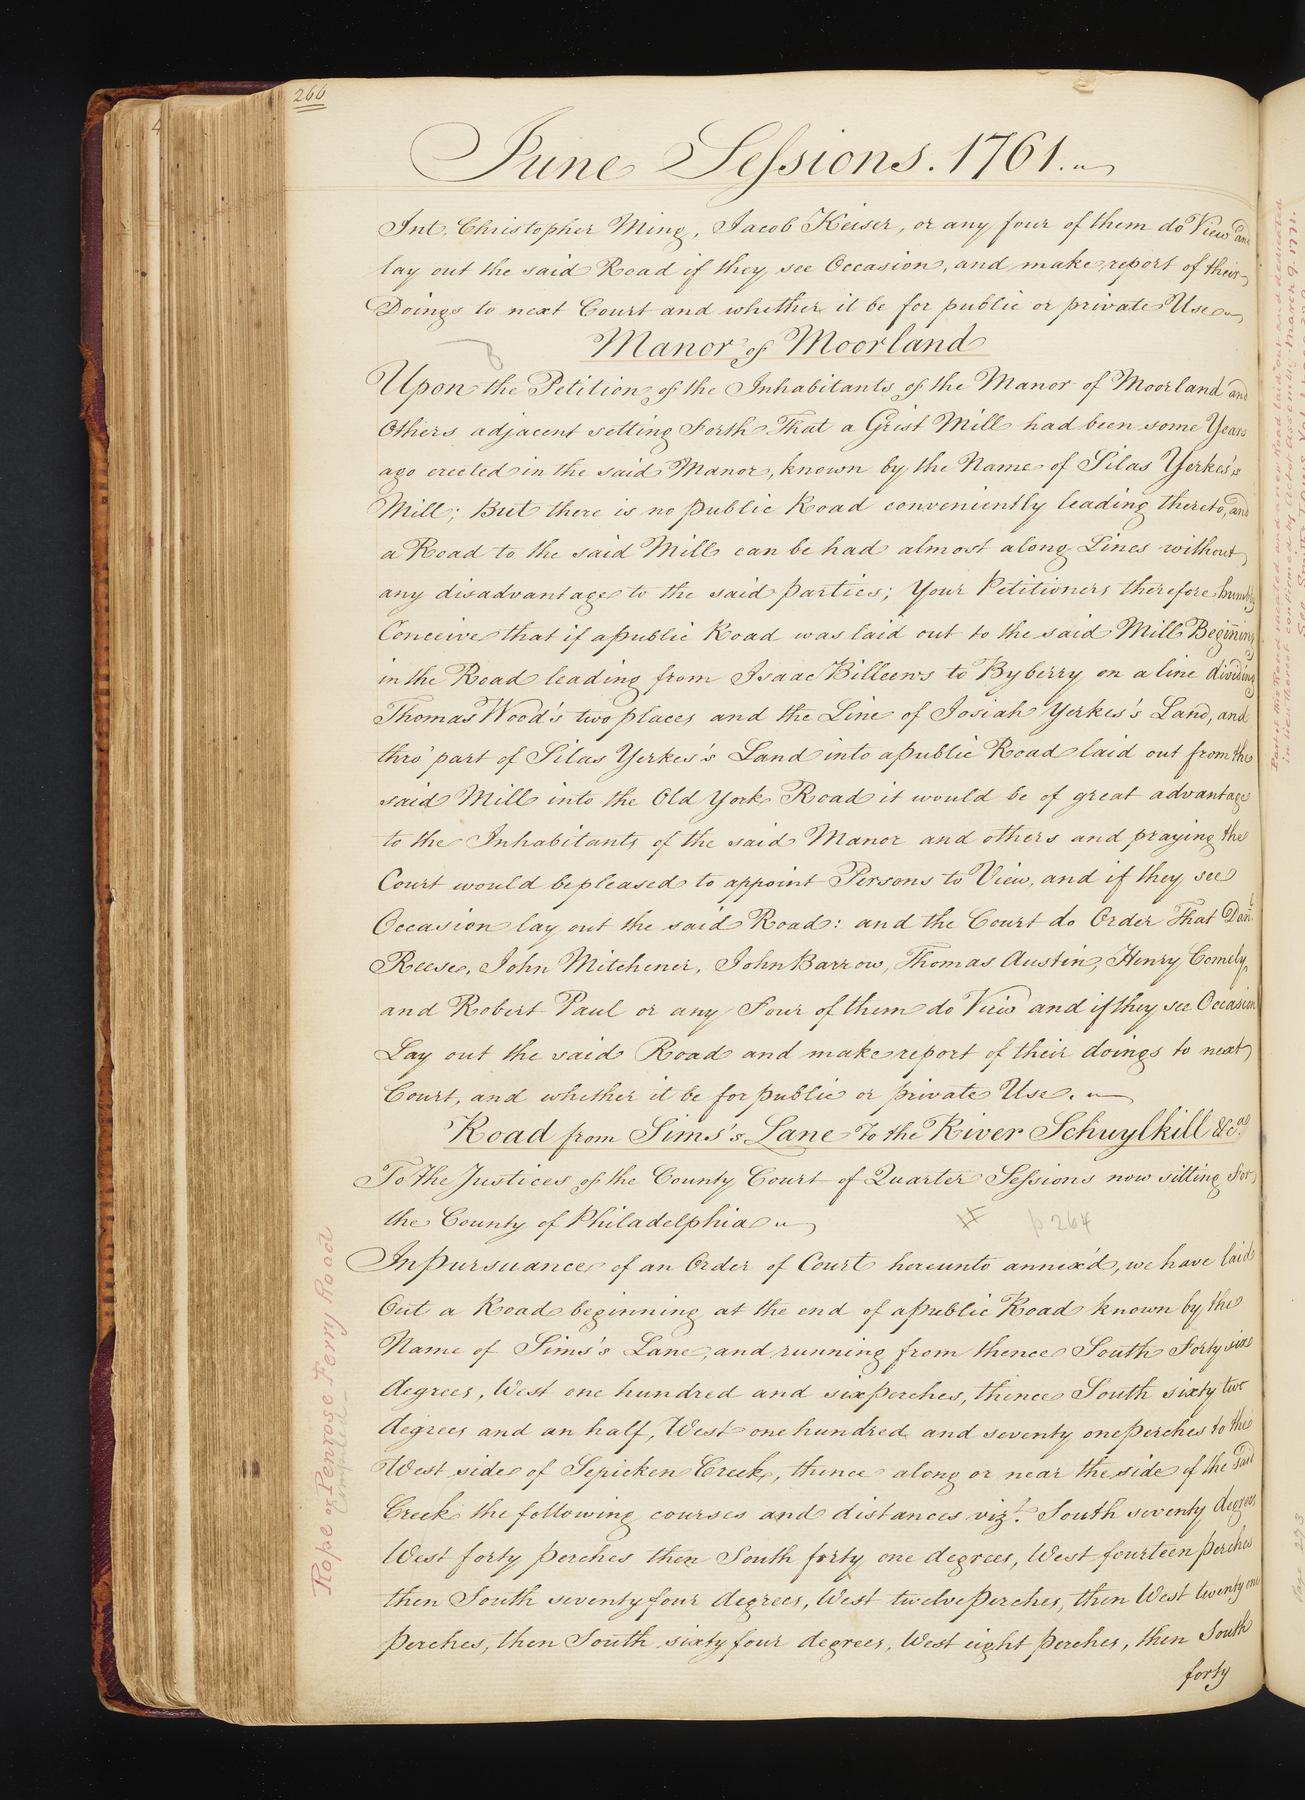 266
June Sessions. 1761.
Int. Christopher Ming, Jacob Keiser, or any four of them do View and
lay out the said Road if they see Occasion, and make report of their
Doings to next Court and whether it be for public or private Use
Manor of Moorland
Upon the Petition of the Inhabitants of the Manor of Moorland and
Others adjacent setting Forth That a Grist Mill had been some Years
ago erected in the said Manor, known by the Name of Silas Yerkes's
Mill; But there is no public Road conveniently leading thereto, and
a Road to the said Mill can be had almost along Lines without
any disadvantage to the said parties; Your Petitioners therefore humbly
Conceive that if a public Road was laid out to the said Mill Begining
in the Road leading from Isaac Billeen's to Byberry on a line dividing
Thomas Wood's two places and the Line of Josiah Yerkes's Land, and
thro' part of Silas Yerkes's Land into a public Road laid out from the
said Mill into the Old York Road it would be of great advantage
to the Inhabitants of the said Manor and others and praying the
Court would be pleased to appoint Persons to View, and if they see
Occasion lay out the said Road: and the Court do Order That Danl.
Reese, John Mitchener, John Barrow, Thomas Austin, Henry Comely,
and Robert Paul or any Four of them do View and if they see Occasion
Lay out the said Road and make report of their doings to next
Court, and whether it be for public or private Use.
Road from Sims's Lane to the River Schuylkill &ca.
To the Justices of the County Court of Quarter Sessions now sitting For
the County of Philadelphia
# p 264
In pursuance of an Order of Court hereunto annex'd, we have laid
Out a Road beginning at the end of a public Road known by the
Name of Sims's Lane, and running from thence South Forty six
degrees, West one hundred and six perches, thence South sixty two
degrees and an half, West one hundred and seventy one perches to the
West side of Sepicken Creek, thence along or near the side of the said
Creek the following courses and distances vizt. South seventy degrees
West forty perches then South forty one degrees, West fourteen perches
then South seventy four degrees, West twelve perches, then West twenty one
perches, then South sixty four degrees, West eight perches, then South
forty
Rope or Penrose Ferry Road